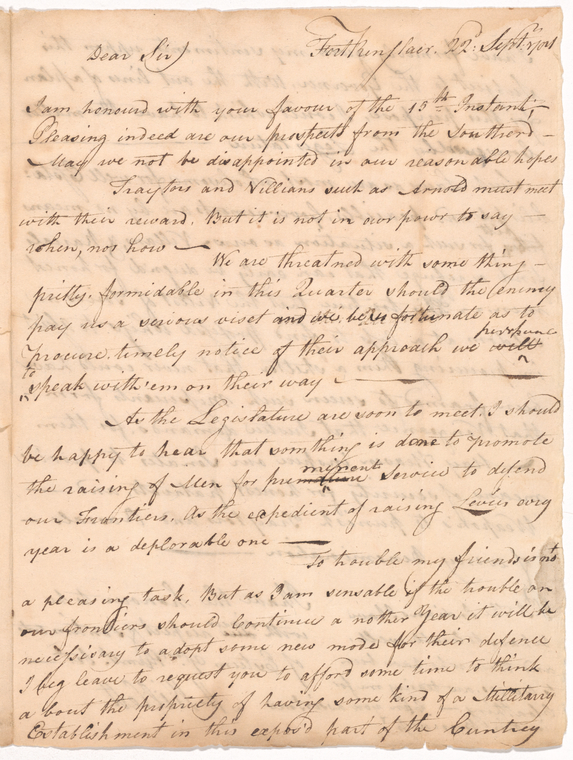 Fortrensslaer. 22d. Septr. 1781
Dear Sir
I am honourd with your favour of the 15th Instant;—
Pleasing indeed are our prospects from the Southerd —
May we not be disappointed in our reasonable hopes
Traytors and Villians such as Arnold must meet
with their reward. But it is not in our powr to say —
when, nor how —
We are threatned with some thing —
pritty. formidable in this Quarter should the enemy
pay us a serious viset and we be so fortunate as to
procure. timely notice of their approach we will perpause
to speak with'em on their way —
As the Legislature are soon to meet. I should
be happy to hear that somthing is done to promote
the raising of Men for perminent Service to defend
our Frontiers. As the expedient of raising Levies evry
year is a deplorable one —
To trouble my friends is not
a pleasing task, But as I am sensable if the trouble on
our frontiers should Continue a nother Year it will be
necessary to adopt some new mode for their defence
I beg leave to request you to afford some time to think
a bout the propriety of having some kind of a Millitary
Establishment in this expos'd part of the Cuntrey